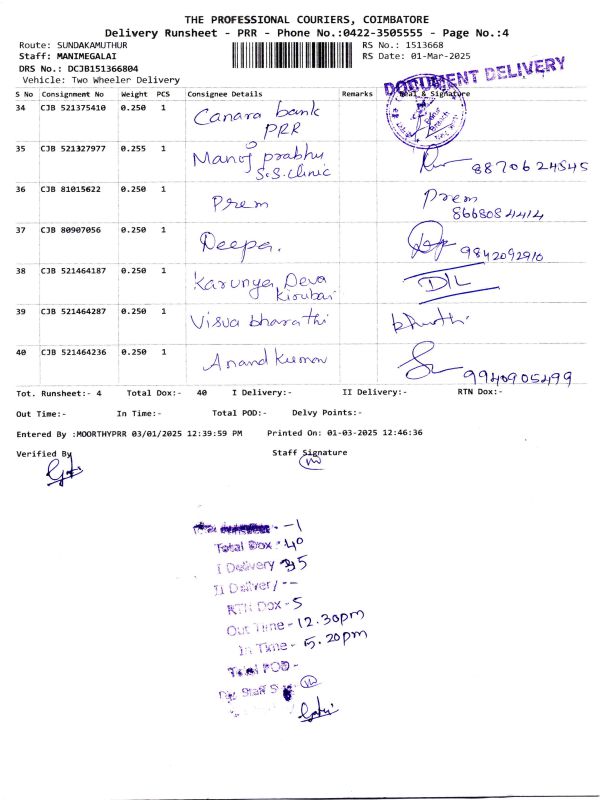 THE PROFESSIONAL COURIERS, COIMBATORE
Delivery Runsheet - PRR - Phone No.:0422-3505555 - Page No.:4
Route: SUNDAKAMUTHUR RS No.: 1513668
Staff: MANIMEGALAI RS Date: 01-Mar-2025
DRS No.: DCJB151366804
Vehicle: Two Wheeler Delivery
DOCUMENT DELIVERY
S No Consignment No Weight PCS Consignee Details Remarks Seal & Signature
34 CJB 521375410 0.250 1 Canara bank
PRR
35 CJB 521327977 0.255 1 Manoj prabhu
S.S.clinic
8870624545
36 CJB 81015622 0.250 1 Prem Prem
8668084414
37 CJB 80907056 0.250 1 Deepa. 9842092910
38 CJB 521464187 0.250 1 Karunya Deva
Kirubai
D/L
39 CJB 521464287 0.250 1 Visva bharathi bharathi
40 CJB 521464236 0.250 1 Anand Kumar
9940905499
Tot. Runsheet:- 4 Total Dox:- 40 I Delivery:- II Delivery:- RTN Dox:-
Out Time:- In Time:- Total POD:- Delvy Points:-
Entered By :MOORTHYPRR 03/01/2025 12:39:59 PM Printed On: 01-03-2025 12:46:36
Verified By Staff Signature
-1
Total Dox : 40
I Delivery 35
II Deliver/ --
RTN Dox - 5
Out Time - 12.30pm
In Time - 5.20pm
Total POD -
Staff